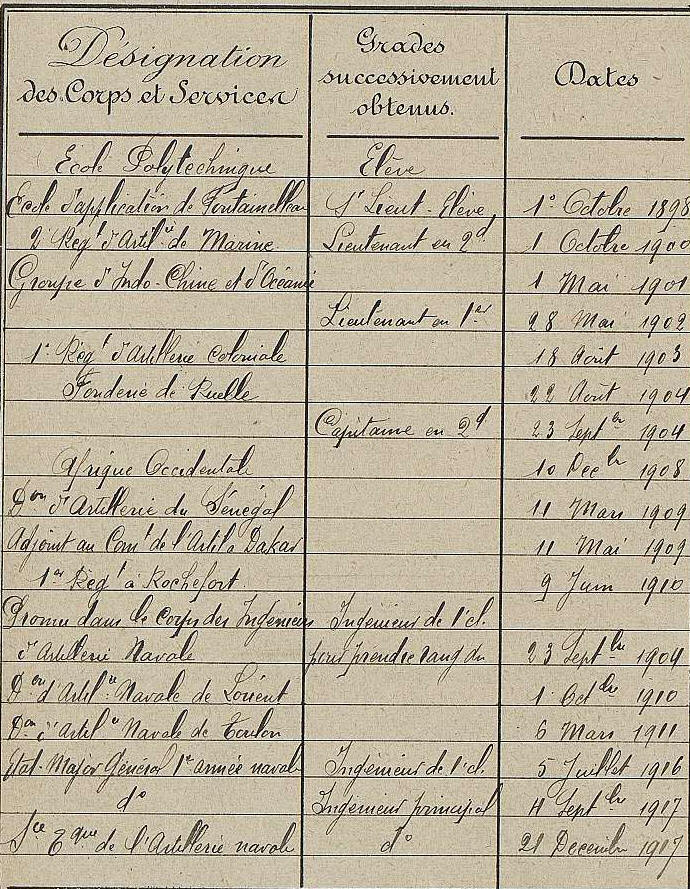 Désignation
des Corps et Services
Grades
successivement
obtenus.
Dates
Ecole Polytechnique Elève
Ecole d'application de Fontainebleau Sr Lieut-Elève 1er Octobre 1898
2e Régt d'Artilie de Marine Lieutenant en 2d 1 Octobre 1900
Groupe d'Indo-Chine et d'Océanie 1 Mai 1901
Lieutenant en 1er 28 Mai 1902
1er Régt d'Artillerie Coloniale 18 Août 1903
Fonderie de Ruelle 22 Août 1904
Capitaine en 2d 23 Septbre 1904
Afrique Occidentale 10 Décbre 1908
Don d'Artillerie du Sénégal 11 Mars 1909
Adjoint au Comt de l'Artil à Dakar 11 Mai 1909
1er Régt à Rochefort 9 Juin 1910
Promu dans le Corps des Ingénieurs Ingénieur de 1e cl.
d'Artillerie Navale pour prendre rang du 23 Septbre 1904
Don d'Artilie Navale de Lorient 1 Octobre 1910
Don d'Artilie Navale de Toulon 6 Mars 1911
Etat-Major Général 1re année navale Ingénieur de 1e cl. 5 Juillet 1916
do Ingénieur principal 4 Septbre 1917
Sce Eque de l'Artillerie navale do 21 Décembre 1917